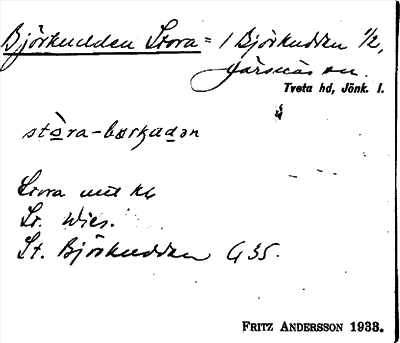 Björkudden Stora = 1 Björkudden 1/2,
Järsnäs sn.
Tveta hd, Jönk. l.
stòra-bœrkudən
Stora utt kb
St. Wies.
St. Björkudden G 35.
FRITZ ANDERSSON 1933.